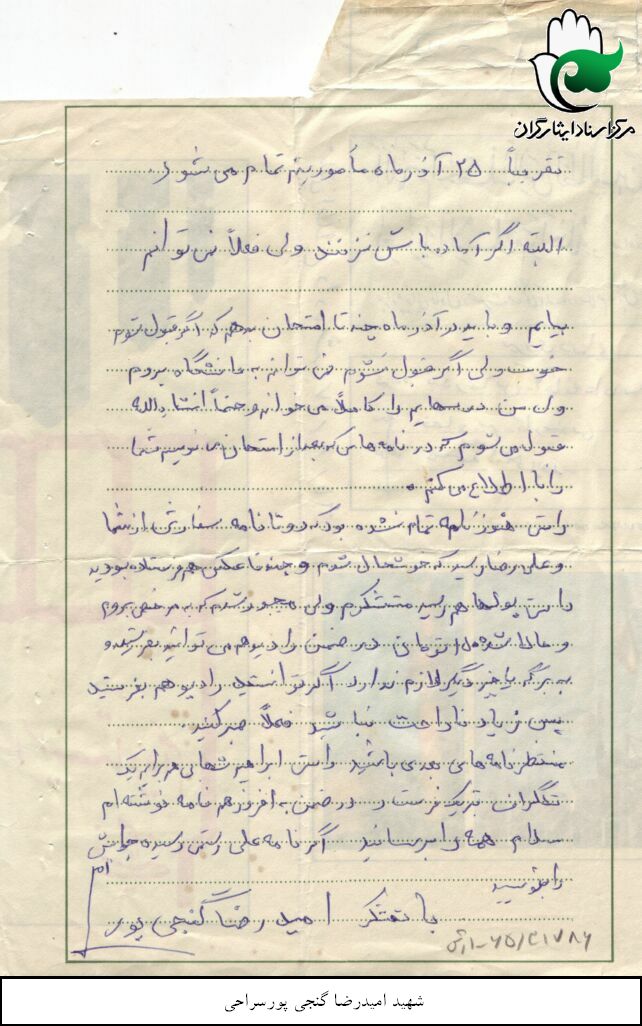 مرکز اسناد ایثارگران
تقریباً ۲۵ آذرماه مأموریتم تمام می شود.
البته اگر آماده باش نزنند ولی فعلاً نمی توانم
بیایم و باید در آذر ماه چند تا امتحان بدهم که اگر قبول شوم
خوب است ولی اگر قبول نشوم نمی توانم به دانشگاه بروم
ولی من درسهایم را کاملاً می خوانم و حتماً انشاءالله
قبول می شوم که در نامه هایی که بعد از امتحان می نویسم شما
را با اطلاع می کنم.
راستی هنوز نامه تمام نشده بود که دو تا نامه سفارشی از شما
و علی رضا رسید که خوشحال شدم و چند تا عکس هم فرستاده بودید
راستی پولها هم رسید متشکرم ولی مجبور شدم که به مرخصی بروم
و حالا شده تومان در ضمن رادیو هم می توانید بفرستید و
به برگه یا چیز دیگر لازم ندارد اگر توانستید رادیو هم بفرستید
پس زیاد ناراحت نباشید فعلاً صبر کنید.
منتظر نامه های بعدی باشید راستی ابراهیم شهابی هم برایم یک
تلگراف تبریک فرستاد و در ضمن به افروز هم نامه نوشته ام
سلام همه را برسانید اگر نامه علی رسید جوابش
را بنویسید
با تشکر امید رضا گنجی پور
شهید امیدرضا گنجی پورسراحی